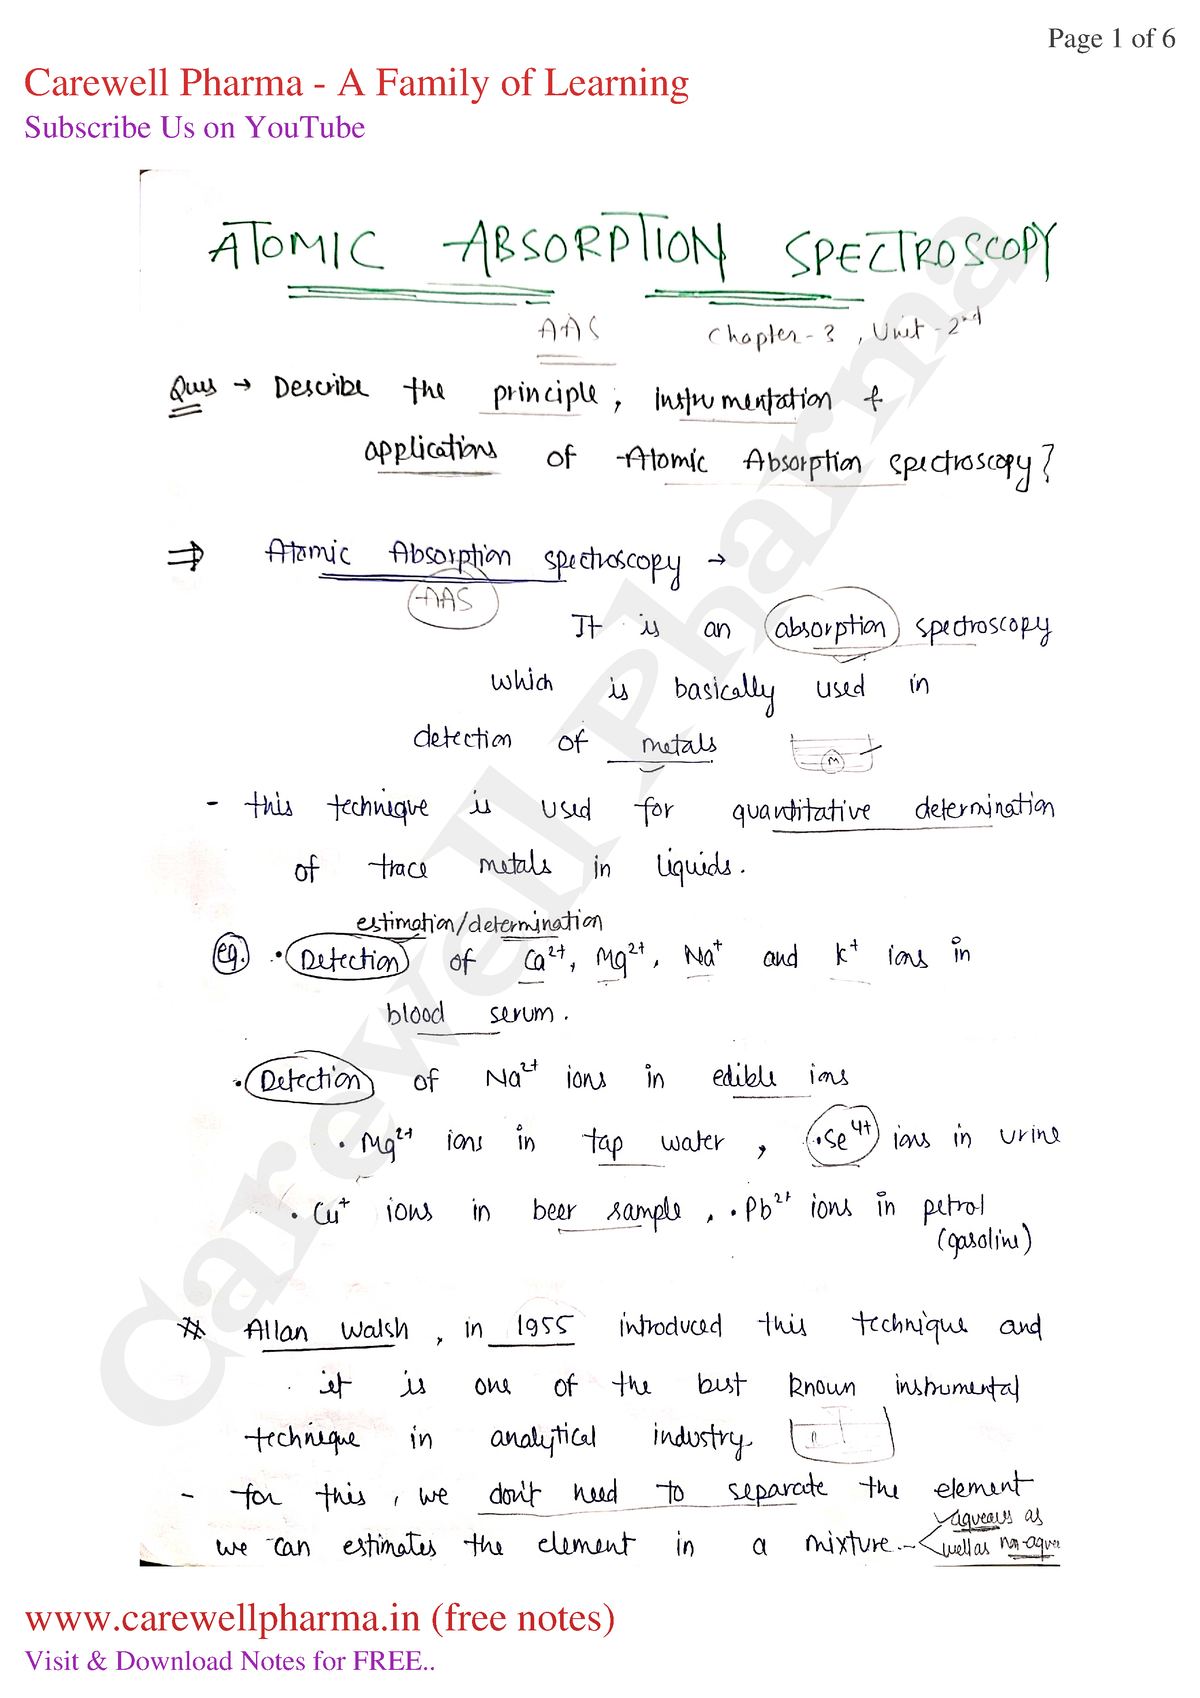 Page 1 of 6
Carewell Pharma - A Family of Learning
Subscribe Us on YouTube
ATOMIC ABSORPTION SPECTROSCOPY
AAS Chapter-3, Unit-2nd
Ques → Describe the principle, instrumentation &
applications of Atomic Absorption spectroscopy?
⇒ Atomic Absorption spectroscopy →
AAS
It is an absorption spectroscopy
which is basically used in
detection of metals
M
- this technique is used for quantitative determination
of trace metals in liquids.
estimation/determination
eg. • Detection of Ca²⁺, Mg²⁺, Na⁺ and K⁺ ions in
blood serum.
• Detection of Na²⁺ ions in edible ions
• Mg²⁺ ions in tap water, • Se⁴⁺ ions in urine
• Cu⁺ ions in beer sample, • Pb²⁺ ions in petrol
(gasoline)
# Allan Walsh, in 1955 introduced this technique and
it is one of the best known instrumental
technique in analytical industry.
- for this, we don't need to separate the element
we can estimates the element in a mixture. - aqueous as
well as non-aque
Carewell Pharma
www.carewellpharma.in (free notes)
Visit & Download Notes for FREE..